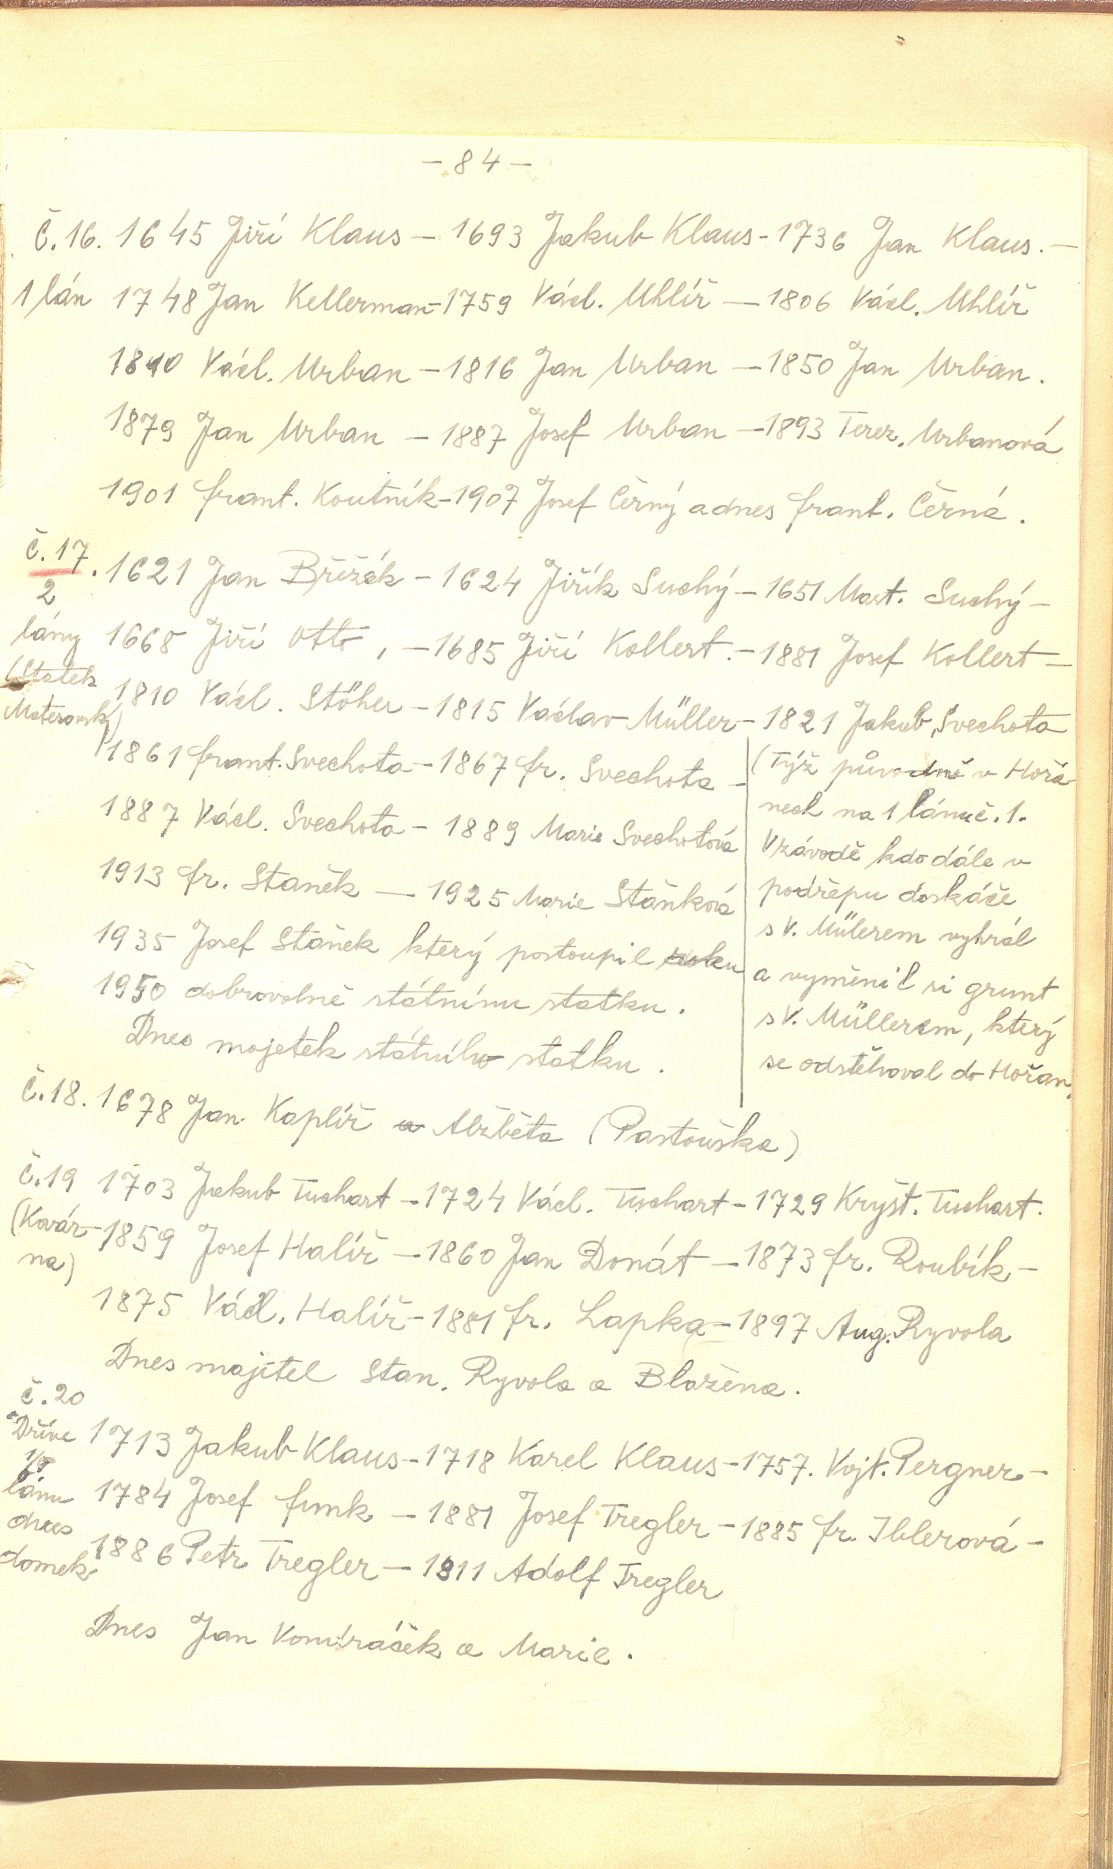 - 84 -
Č. 16. 1645 Jiří Klaus - 1693 Jakub Klaus - 1736 Jan Klaus. -
1 lán 1748 Jan Kellerman - 1759 Václ. Uhlíř - 1806 Václ. Uhlíř
1810 Václ. Urban - 1816 Jan Urban - 1850 Jan Urban.
1879 Jan Urban - 1887 Josef Urban - 1893 Terez. Urbanová
1901 Frant. Koutník - 1907 Josef Černý a dnes Frant. Černá.
Č. 17. 1621 Jan Břežák - 1624 Jiřík Suchý - 1651 Mart. Suchý -
2
lány 1668 Jiří Otto, - 1685 Jiří Kollert. - 1881 Josef Kollert -
(Statek
1810 Václ. Stöher - 1815 Václav Müller - 1821 Jakub Svechota
1861 Frant. Svechota - 1867 Fr. Svechota -
1887 Václ. Svechota - 1889 Marie Svechotová
1913 Fr. Staněk - 1925 Marie Staňková
1935 Josef Staněk který postoupil
1950 dobrovolně státnímu statku.
Dnes majetek státního statku.
(Týž původně v Hořa
nech na 1 lánu č. 1.
V závodě kdo dále v
podřepu doskáče
s V. Mülerem vyhrál
a vyměnil si grunt
s V. Müllerem, který
se odstěhoval do Hořan,
Č. 18. 1678 Jan Kaplíř a Alžběta (Pastouška)
Č. 19 1703 Jakub Tuchart - 1724 Václ. Tuchart - 1729 Kryšt. Tuchart.
(Kovár- 1859 Josef Halíř - 1860 Jan Donát - 1873 Fr. Roubík -
na)
1875 Václ. Halíř - 1881 Fr. Lapka - 1897 Aug. Ryvola
Dnes majitel Stan. Ryvola a Blažena.
Č. 20
Dříve 1713 Jakub Klaus - 1718 Karel Klaus - 1757. Vojt. Pergner -
lánu 1784 Josef Funk - 1881 Josef Tregler - 1885 Fr. Iblerová -
dnes
domek 1886 Petr Tregler - 1911 Adolf Tregler
Dnes Jan Komíráček a Marie.